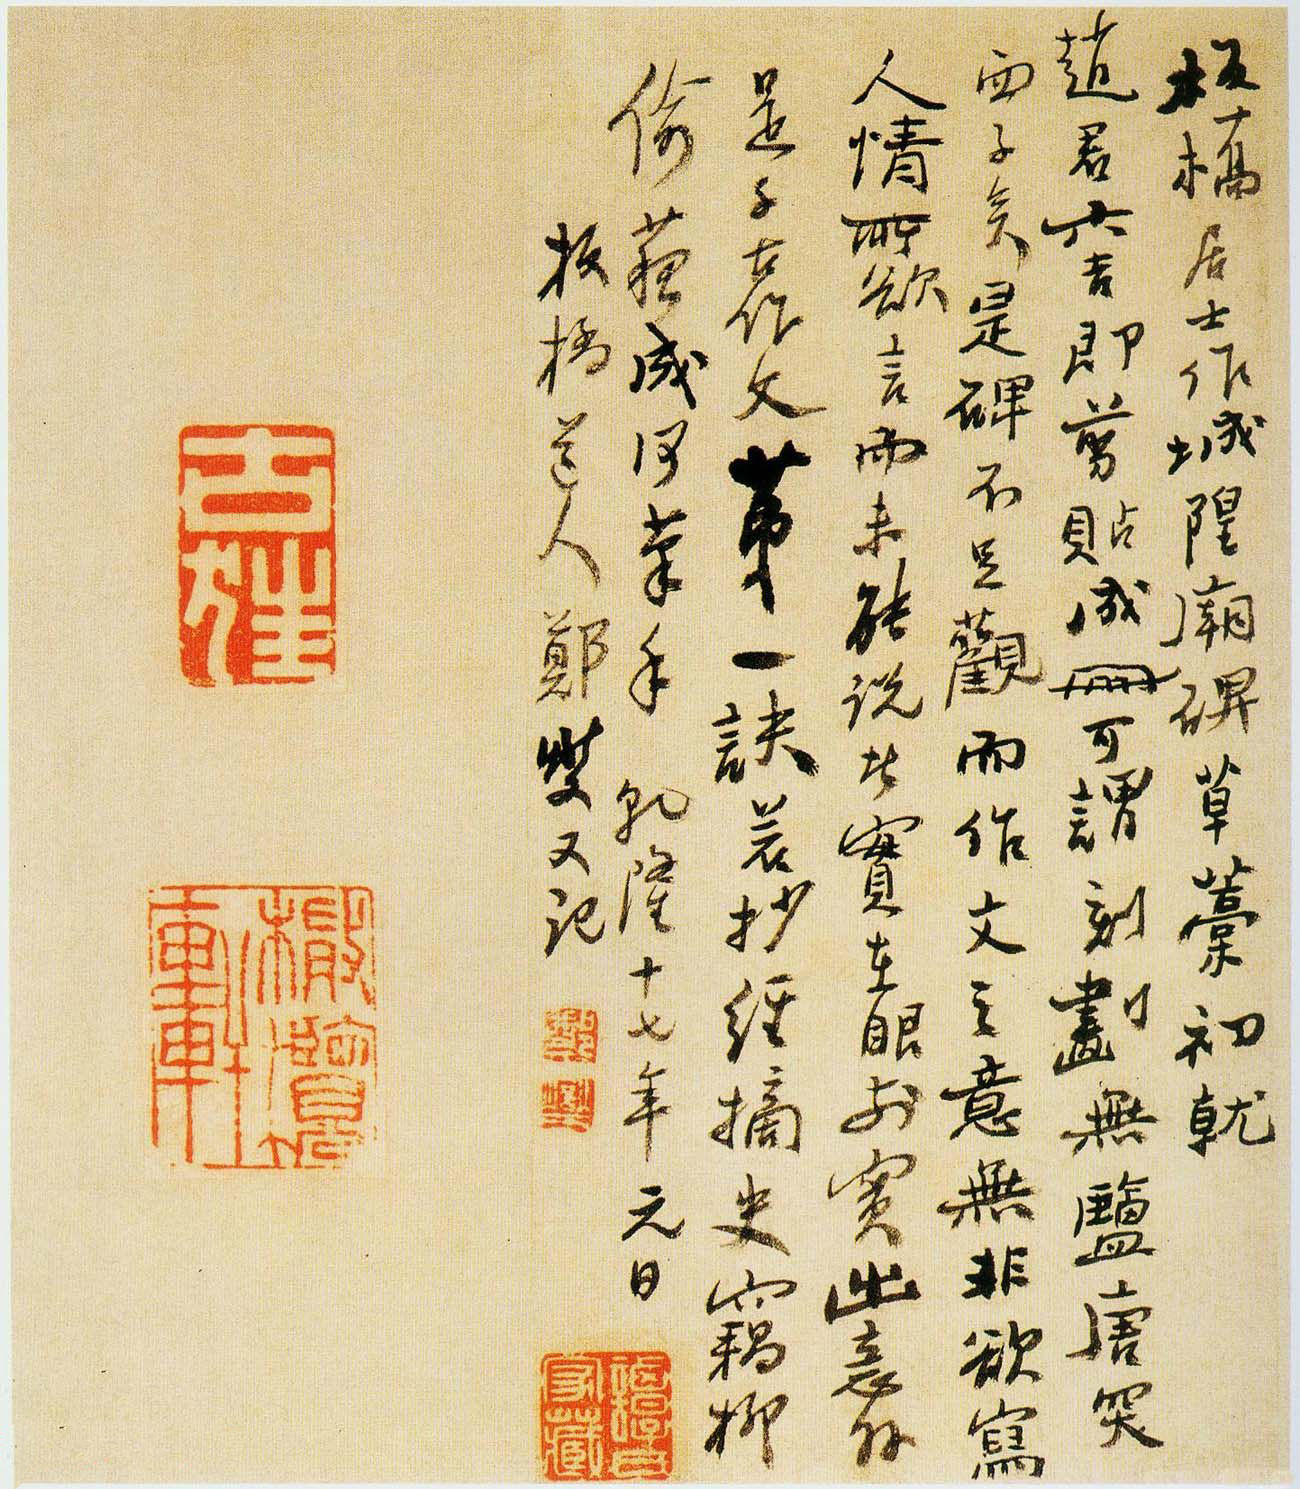 板橋居士作城隍廟碑草藁初就
趙君六吉即剪貼成冊可謂刻畫無鹽唐突
西子矣是碑不足觀而作文之意無非欲寫
人情所欲言而未能說者實在眼前實出意外
是千古作文第一訣若抄經摘史竊柳
偷蘇成何筆手乾隆十七年元日
板橋道人鄭燮又記
鄭燮
家藏